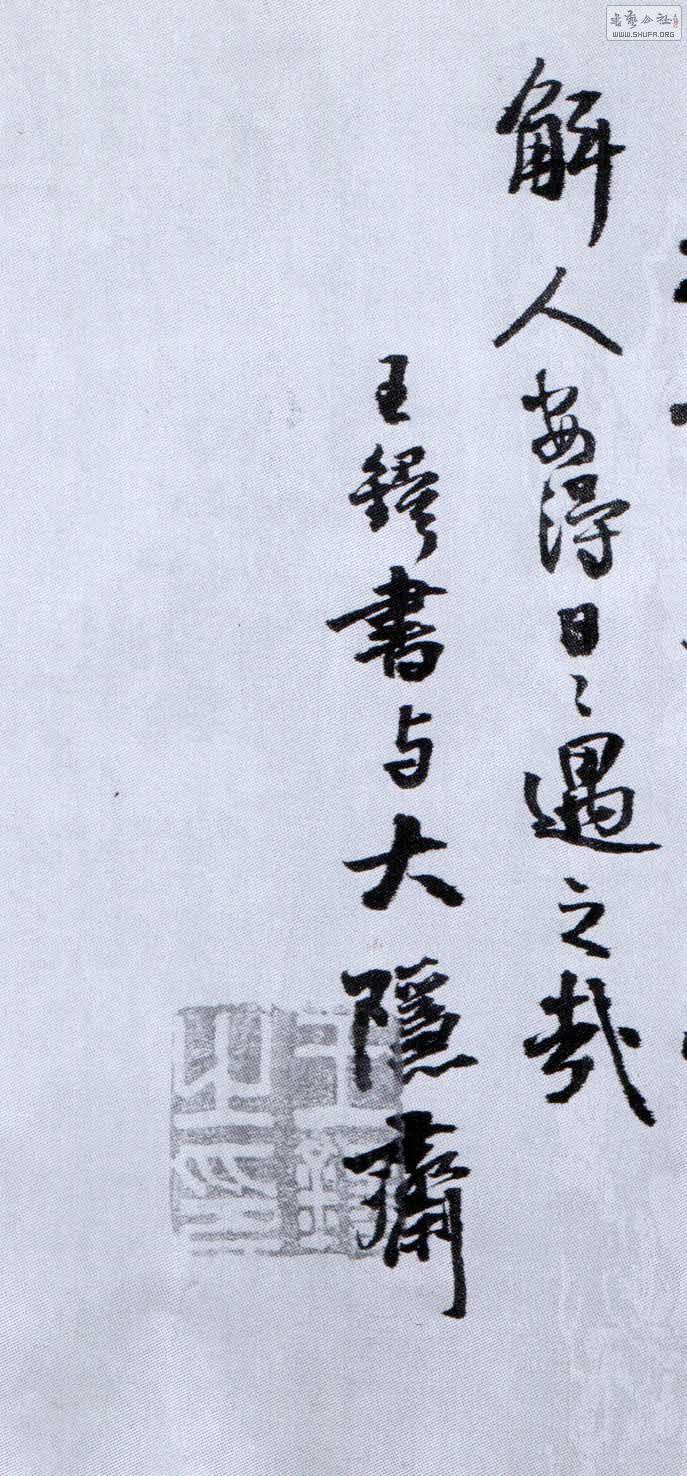 解人安得日〻遇之哉
王鐸書与大隱齋
WWW.SHUFA.ORG